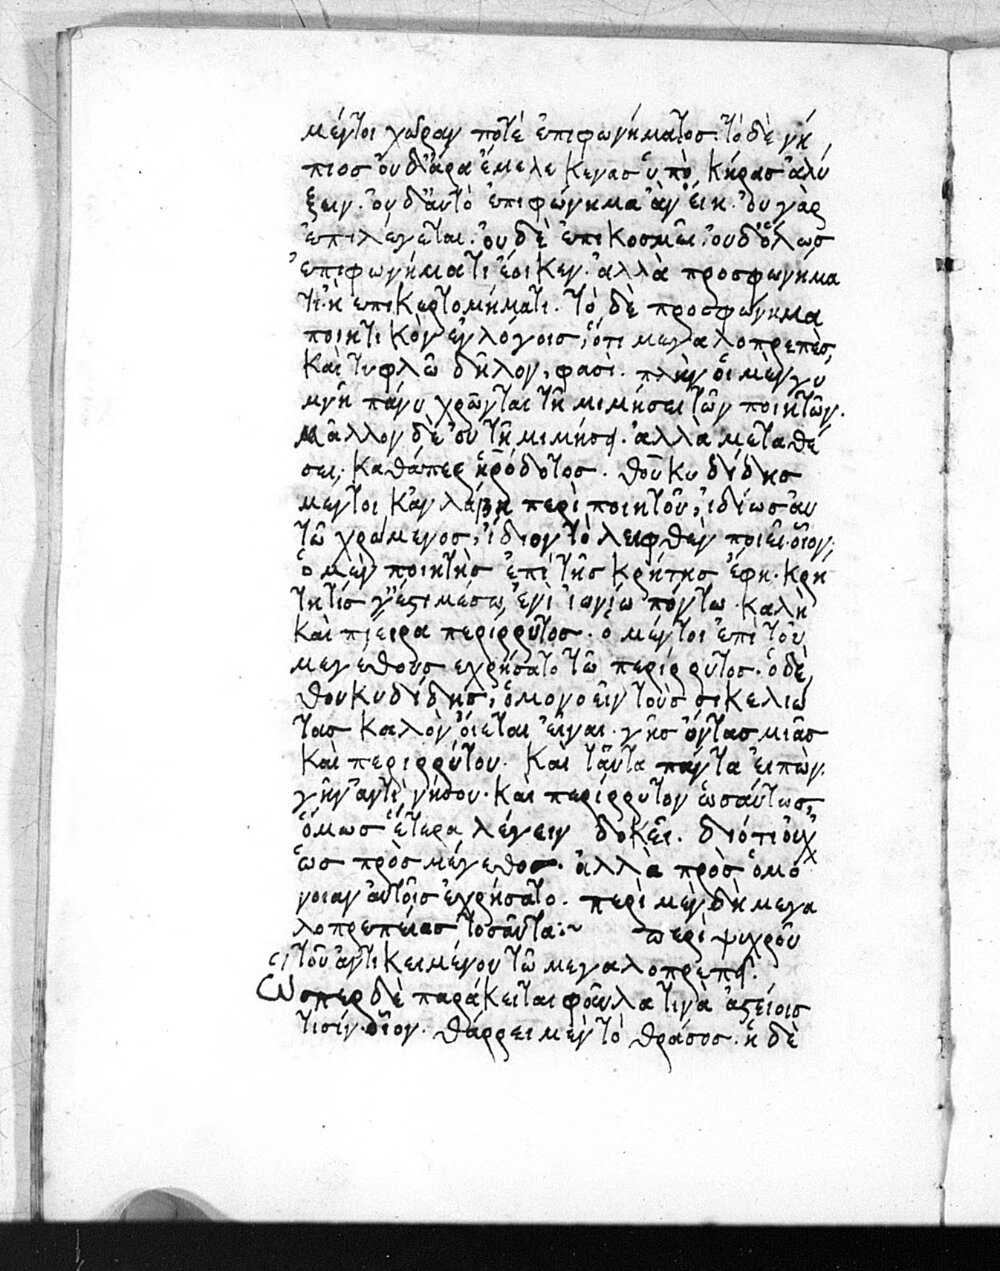 μέντοι χώραν ποτὲ ἐπιφωνήματος. τὸ δὲ νή
πιος οὐδ' ἄρα ἔμελε κενας ὑπὸ κῆρας ἀλύ
ξειν. οὐδ' αὐτὸ ἐπιφώνημα ἂν εἴη. οὐ γὰρ
ἐπιλέγεται. οὐδὲ ἐπικοσμεῖ. οὐδ' ὅλως
ἐπιφωνήματι ἔοικεν. ἀλλὰ προσφωνήμα
τι. ἢ ἐπικερτομήματι. τὸ δὲ προσφώνημα
ποιητικὸν ἐν λόγοις, ὅτι μεγαλοπρεπὲς,
καὶ τυφλῶ δῆλον, φασὶ. πλὴν οἱ μὲν γυ
μνῆ πάνυ χρῶνται τῆ μιμήσει τῶν ποιητῶν.
μᾶλλον δὲ οὐ τῆ μιμήσει. ἀλλὰ μεταθέ
σει. καθάπερ ἡρόδοτος. θουκυδίδης
μέντοι κἂν λάβη περὶ ποιητοῦ, ἰδίως αὐ
τῶ χρώμενος, ἴδιον τὸ λειφθὲν ποιεῖ. οἷον,
ὁ μὲν ποιητὴς ἐπὶ τῆς κρήτης ἔφη. κρή
τη τίς γ' ἔστι μέσω ἐνὶ ἰονίω πόντω. καλὴ
καὶ πίειρα περίρρυτος. ὁ μέντοι ἐπὶ τοῦ
μεγέθους ἐχρήσατο τῶ περίρρυτος. ὁ δὲ,
θουκυδίδης, ὁμονοεῖν τοὺς σικελιώ
τας καλὸν οἴεται εἶναι. γῆς ὄντας μιᾶς
καὶ περιρρύτου. καὶ ταῦτα πάντα εἰπὼν.
γῆν ἀντὶ νήσου. καὶ περίρρυτον ὡσαύτως,
ὅμως ἕτερα λέγειν δοκεῖ. διότι οὐχ
ὡς πρὸς μέγεθος. ἀλλὰ πρὸς ὁμό
νοιαν αὐτοῖς ἐχρήσατο. περὶ μὲν δὴ μεγα
λοπρεπείας τοσαῦτα:~ περὶ ψυχροῦ
τοῦ ἀντικειμένου τῶ μεγαλοπρεπεῖ.
Ὥσπερ δὲ παράκειται φαῦλα τινὰ ἀστείοις
τισὶν. οἷον. θάρρει μὲν τὸ θράσος. ἡ δὲ